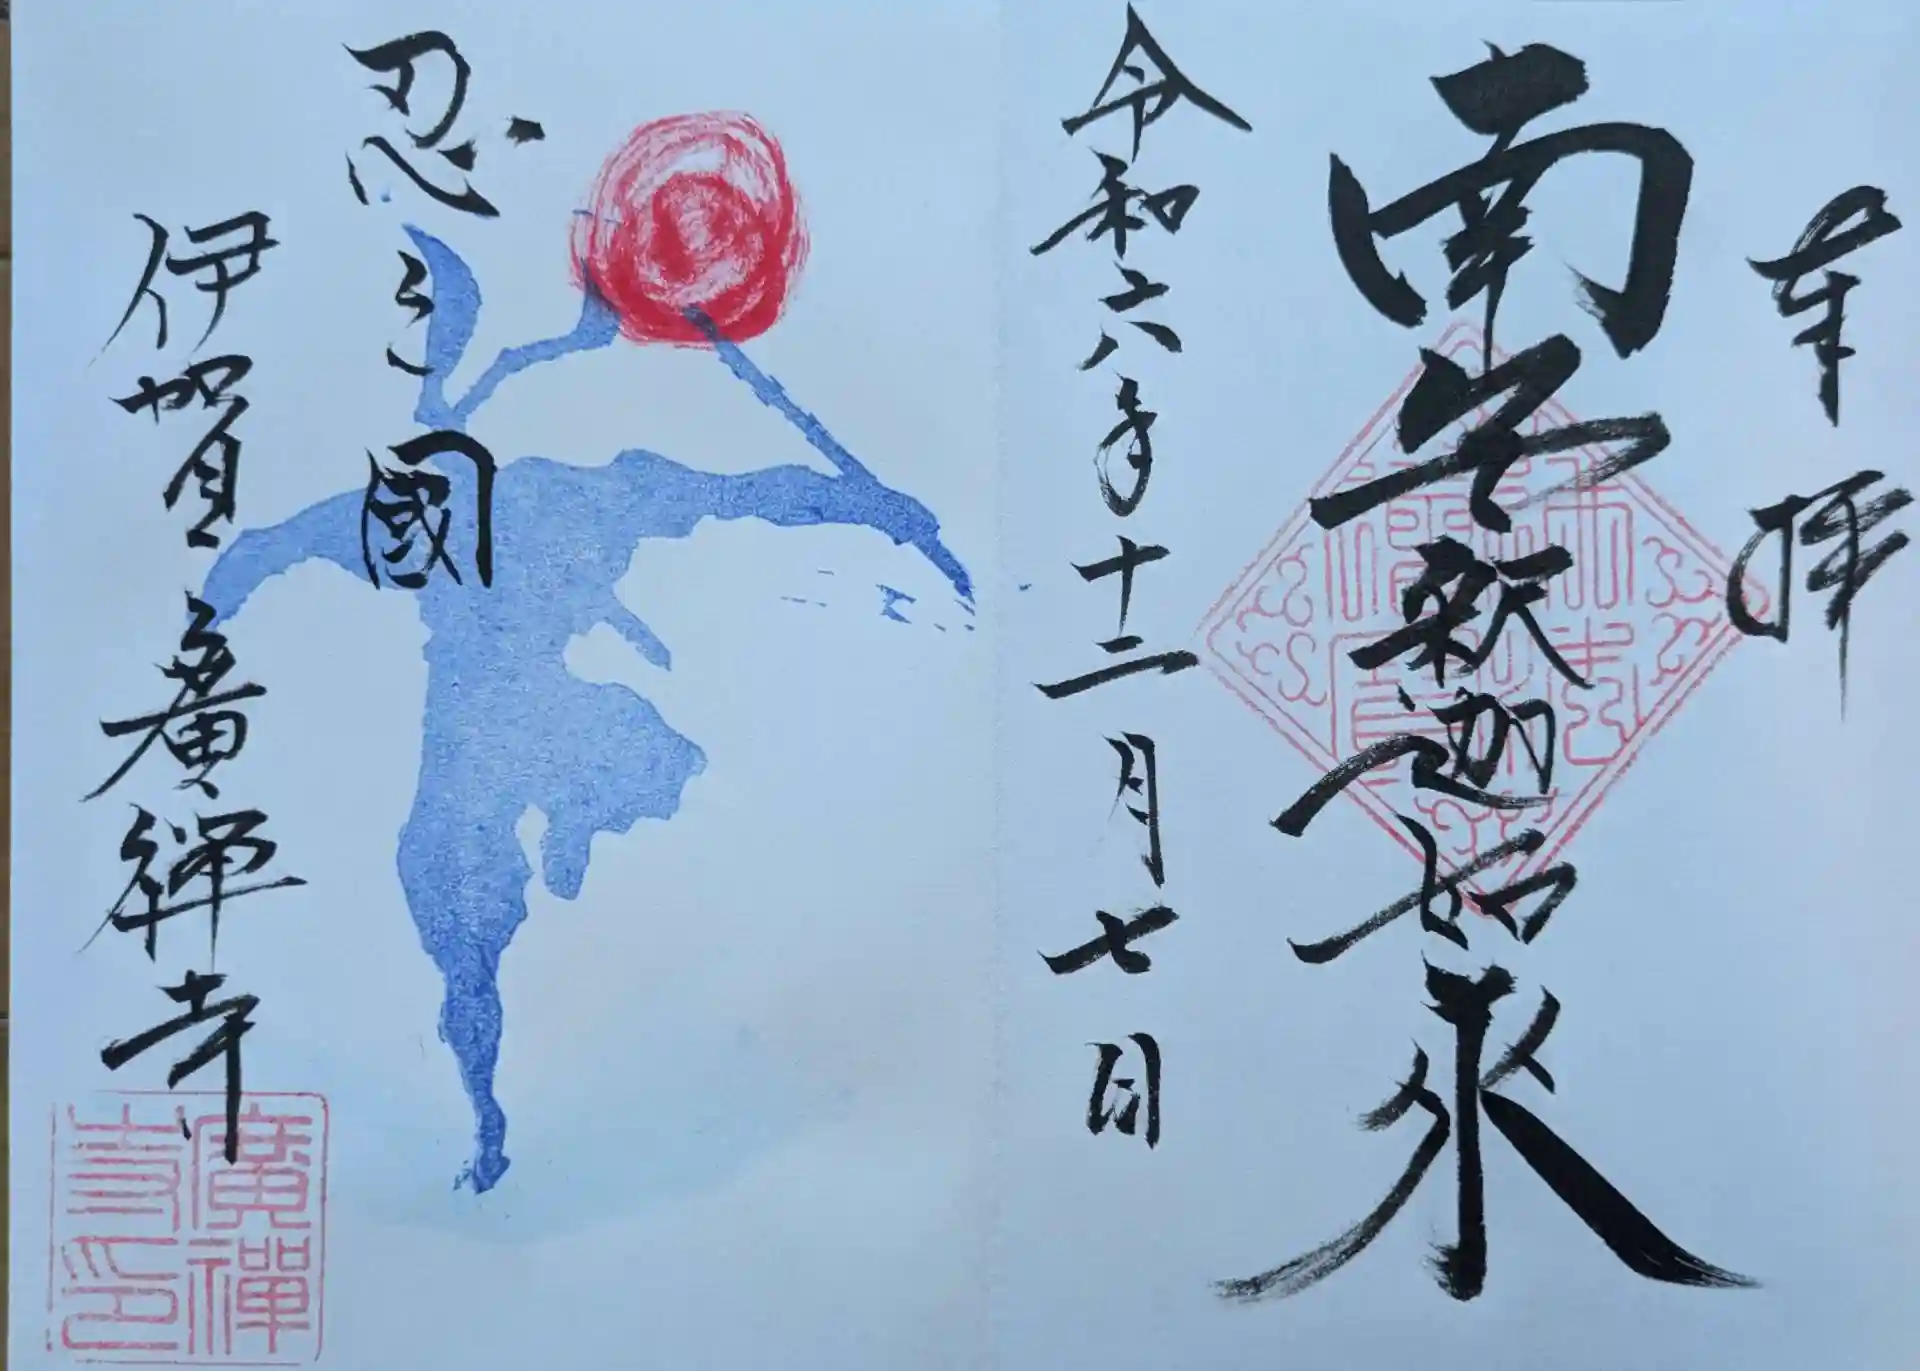 奉拝
南無釈迦如来
令和六年十二月七日
忍之國
伊賀廣禅寺
廣禪
寺印